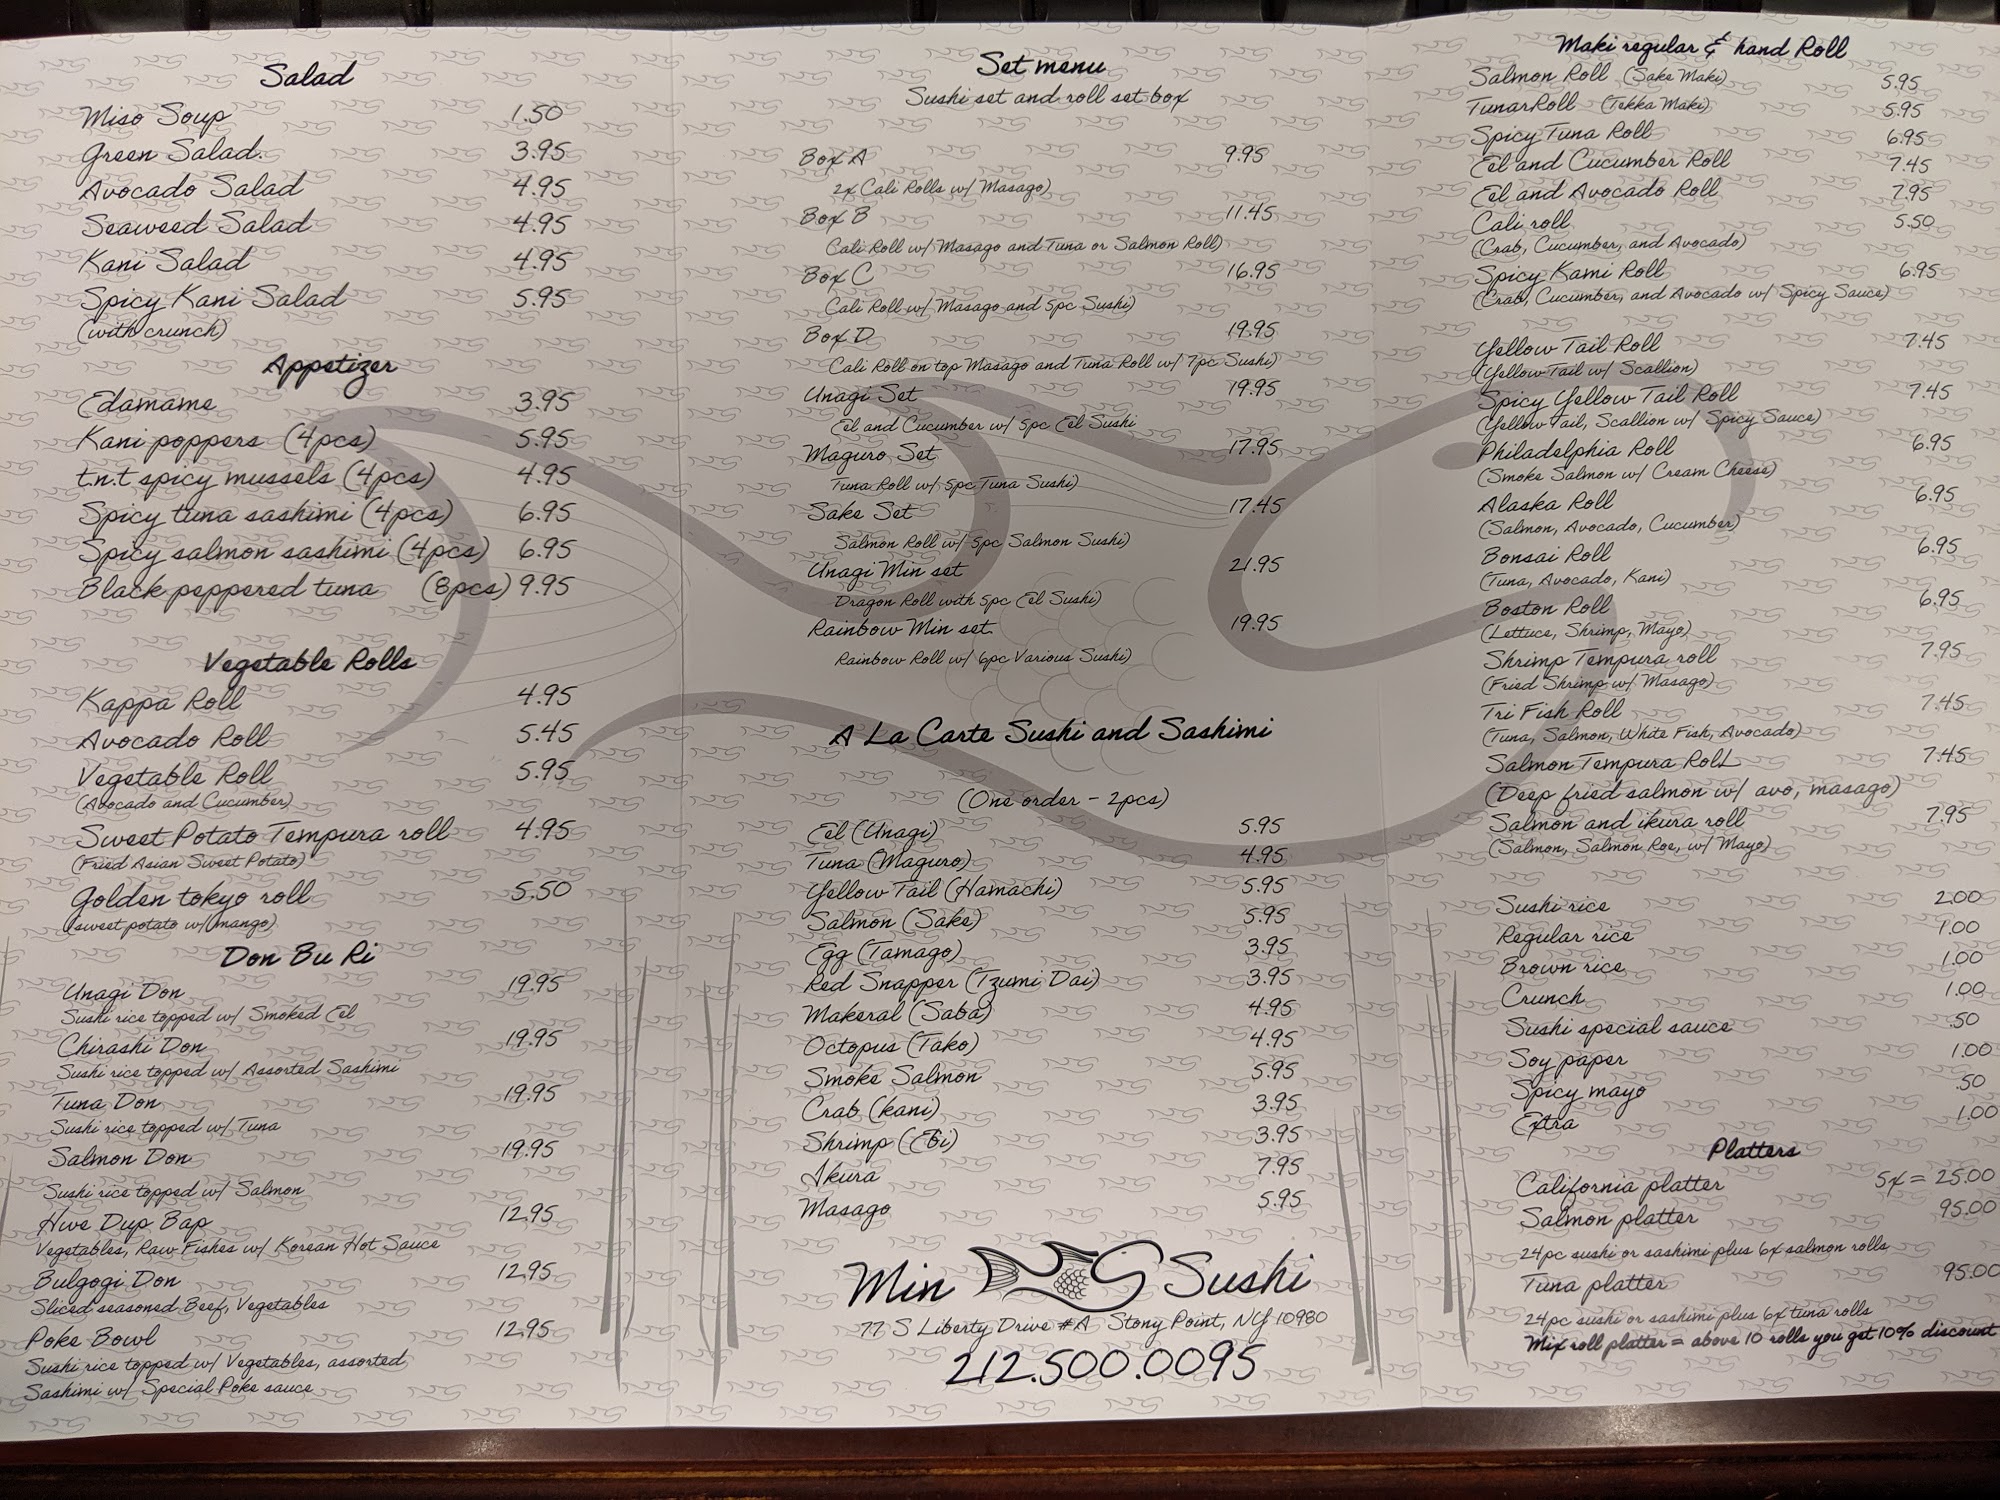 Salad
Miso Soup 1.50
Green Salad. 3.95
Avocado Salad 4.95
Seaweed Salad 4.95
Kani Salad 4.95
Spicy Kani Salad 5.95
(with crunch)
Appetizer
Edamame 3.95
Kani poppers (4pcs) 5.95
t.n.t spicy mussels (4pcs) 4.95
Spicy tuna sashimi (4pcs) 6.95
Spicy salmon sashimi (4pcs) 6.95
Black peppered tuna (8pcs) 9.95
Vegetable Rolls
Kappa Roll 4.95
Avocado Roll 5.45
Vegetable Roll 5.95
(Avocado and Cucumber)
Sweet Potato Tempura roll 4.95
(Fried Asian Sweet Potato)
Golden tokyo roll 5.50
(sweet potato w/mango)
Don Bu Ri
Unagi Don 19.95
Sushi rice topped w/ Smoked Eel
Chirashi Don 19.95
Sushi rice topped w/ Assorted Sashimi
Tuna Don 19.95
Sushi rice topped w/ Tuna
Salmon Don 19.95
Sushi rice topped w/ Salmon
Hwe Dup Bap 12.95
Vegetables, Raw Fishes w/ Korean Hot Sauce
Bulgogi Don 12.95
Sliced seasoned Beef, Vegetables
Poke Bowl 12.95
Sushi rice topped w/ Vegetables, assorted
Sashimi w/ Special Poke sauce
Set menu
Sushi set and roll set box
Box A 9.95
2x Cali Rolls w/ Masago)
Box B 11.45
Cali Roll w/ Masago and Tuna or Salmon Roll)
Box C 16.95
Cali Roll w/ Masago and 5pc Sushi)
Box D 19.95
Cali Roll on top Masago and Tuna Roll w/ 7pc Sushi)
Unagi Set 19.95
Eel and Cucumber w/ 5pc Eel Sushi
Maguro Set 17.95
Tuna Roll w/ 5pc Tuna Sushi)
Sake Set 17.45
Salmon Roll w/ 5pc Salmon Sushi)
Unagi Min set 21.95
Dragon Roll with 5pc Eel Sushi)
Rainbow Min set. 19.95
Rainbow Roll w/ 6pc Various Sushi)
A La Carte Sushi and Sashimi
(One order - 2pcs)
Eel (Unagi) 5.95
Tuna (Maguro) 4.95
Yellow Tail (Hamachi) 5.95
Salmon (Sake) 5.95
Egg (Tamago) 3.95
Red Snapper (Tzumi Dai) 3.95
Makeral (Saba) 4.95
Octopus (Tako) 4.95
Smoke Salmon 5.95
Crab (kani) 3.95
Shrimp (Ebi) 3.95
Ikura 7.95
Masago 5.95
Min Sushi
77 S Liberty Drive #A Stony Point, NY 10980
212.500.0095
Maki regular & hand Roll
Salmon Roll (Sake Maki) 5.95
TunarRoll (Tekka Maki) 5.95
Spicy Tuna Roll 6.95
Eel and Cucumber Roll 7.45
Eel and Avocado Roll 7.95
Cali roll 5.50
(Crab, Cucumber, and Avocado)
Spicy Kami Roll 6.95
(Crab, Cucumber, and Avocado w/ Spicy Sauce)
Yellow Tail Roll 7.45
(Yellow Tail w/ Scallion)
Spicy Yellow Tail Roll 7.45
(Yellow Tail, Scallion w/ Spicy Sauce)
Philadelphia Roll 6.95
(Smoke Salmon w/ Cream Cheese)
Alaska Roll 6.95
(Salmon, Avocado, Cucumber)
Bonsai Roll 6.95
(Tuna, Avocado, Kani)
Boston Roll 6.95
(Lettuce, Shrimp, Mayo)
Shrimp Tempura roll 7.95
(Fried Shrimp w/ Masago)
Tri Fish Roll 7.45
(Tuna, Salmon, White Fish, Avocado)
Salmon Tempura RolL 7.45
(Deep fried salmon w/ avo, masago)
Salmon and ikura roll 7.95
(Salmon, Salmon Roe, w/ Mayo)
Sushi rice 2.00
Regular rice 1.00
Brown rice 1.00
Crunch 1.00
Sushi special sauce .50
Soy paper 1.00
Spicy mayo .50
Extra 1.00
Platters
California platter 5x = 25.00
Salmon platter 95.00
24pc sushi or sashimi plus 6x salmon rolls
Tuna platter 95.00
24pc sushi or sashimi plus 6x tuna rolls
Mix roll platter = above 10 rolls you get 10% discount